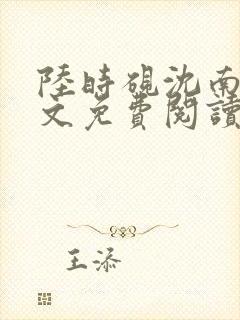 陸時硯沈南
文免費閱讀
王添